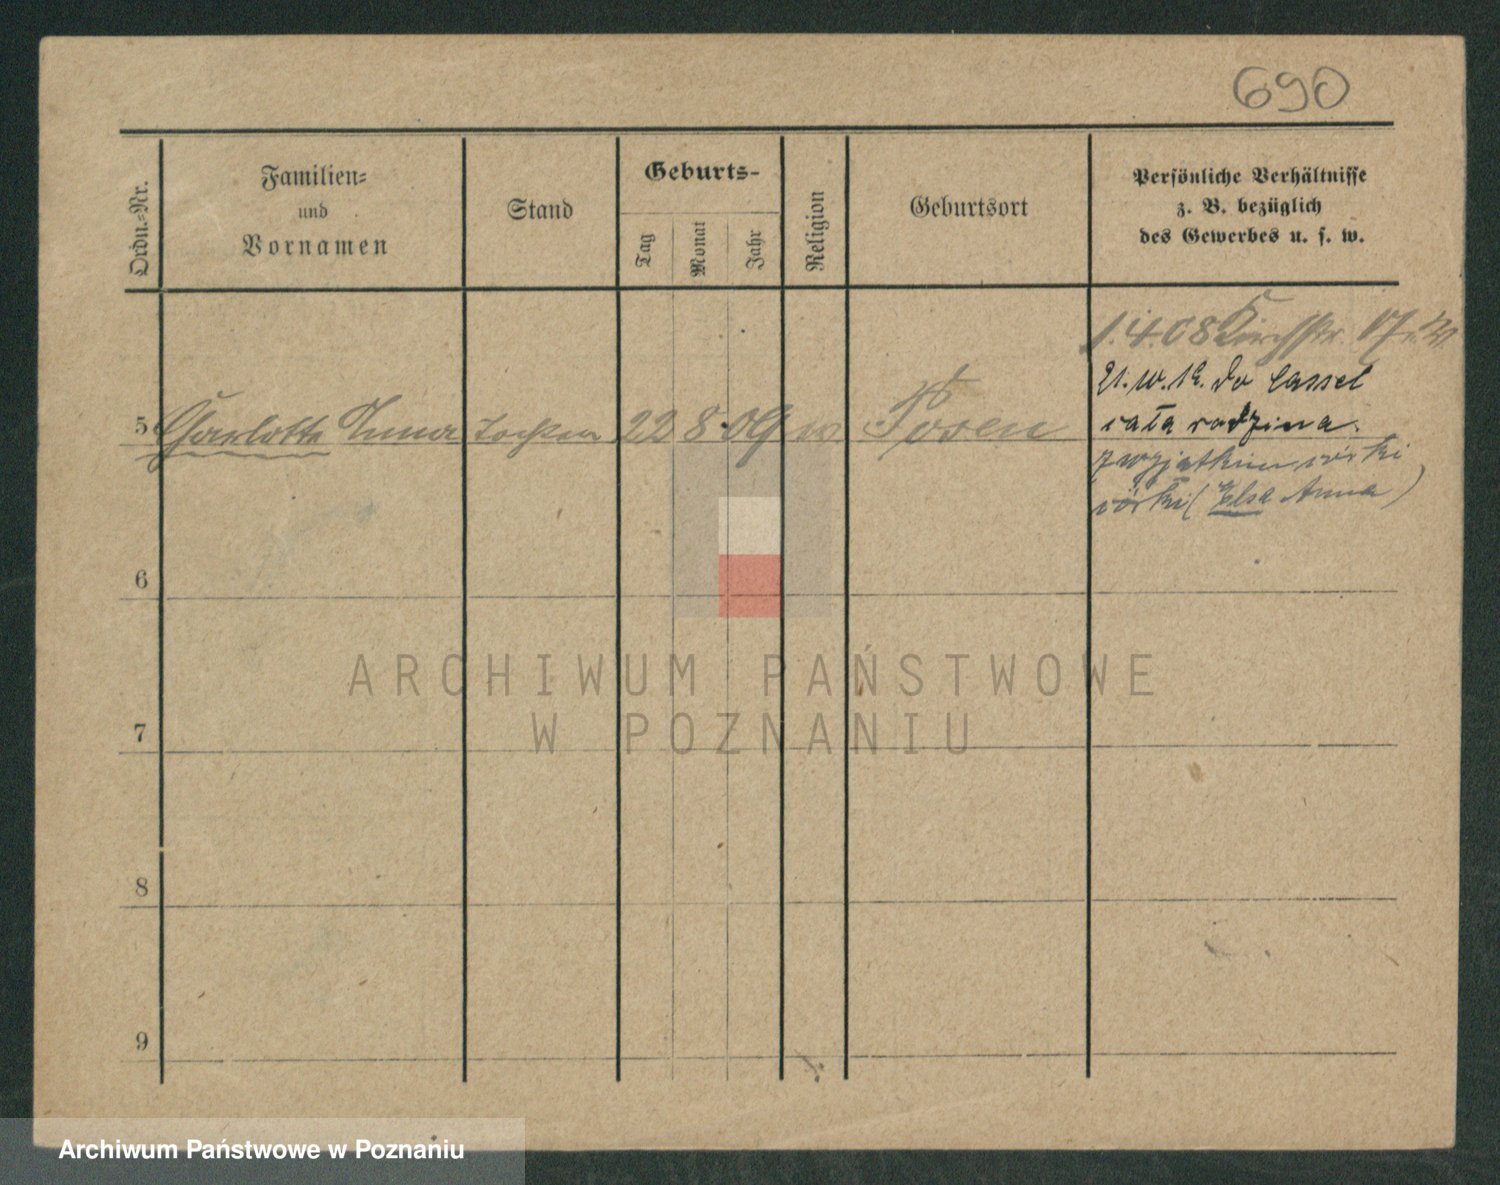 690
Ordn.-Nr.
Familien-
und
Vornamen
Stand
Geburts-
Tag
Monat
Jahr
Religion
Geburtsort
Persönliche Verhältnisse
z. B. bezüglich
des Gewerbes u. s. w.
1.4.08 Kirchstr. 17
5 Charlotte Anna Tochter 22 8 09 Posen
do Cassel
cała rodzina.
córki
córki (Elsa Anna)
6
7
8
9
ARCHIWUM PAŃSTWOWE
W POZNANIU
Archiwum Państwowe w Poznaniu